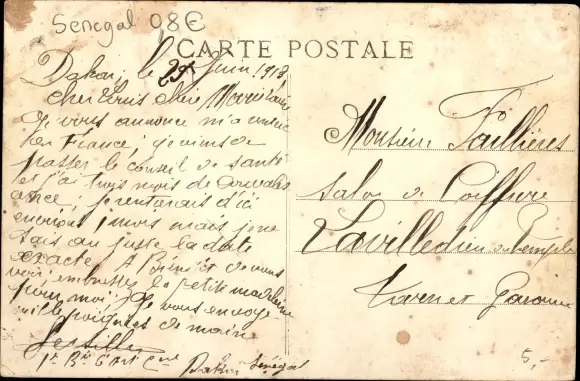 Senegal 08€
CARTE POSTALE
Dakar, le 29 Juin 1918
cher Louis cher
Je vous annonce m'a
en France, je viens de
passer le conseil de santé
et j'ai trois mois de convales
ence, je rentrerais d'ici
environ 1 mois mais je ne
sais au juste la date
exacte. A Bientôt de vous
voir, embrassez la petite madeleine
pour moi, Je vous envoye
mille poignées de main
Dakar Sénégal
Monsieur Faillières
Salon de Coiffure
Lavilledieu du Temple
Tarn et Garonne
5,-